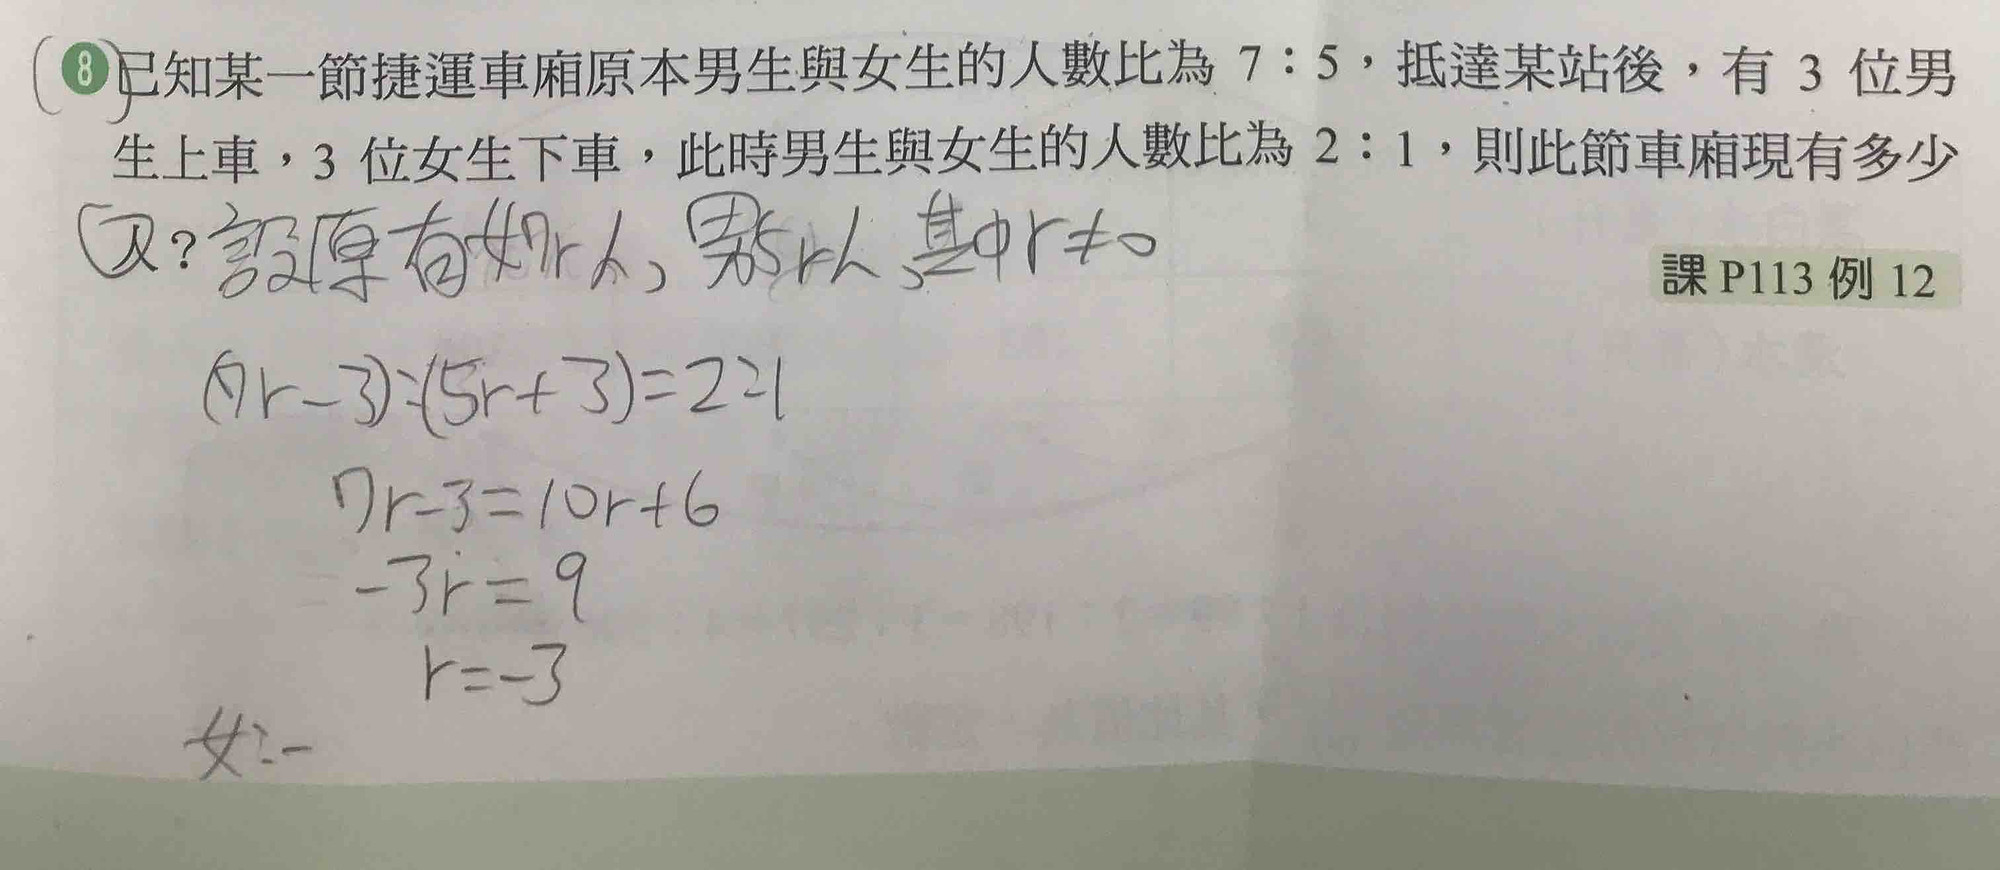 8 已知某一節捷運車廂原本男生與女生的人數比為 7：5，抵達某站後，有 3 位男
生上車，3 位女生下車，此時男生與女生的人數比為 2：1，則此節車廂現有多少
人？設原有女7r人，男5r人，其中r≠0
課 P113 例 12
(7r-3):(5r+3)=2:1
7r-3=10r+6
-3r=9
r=-3
女:-